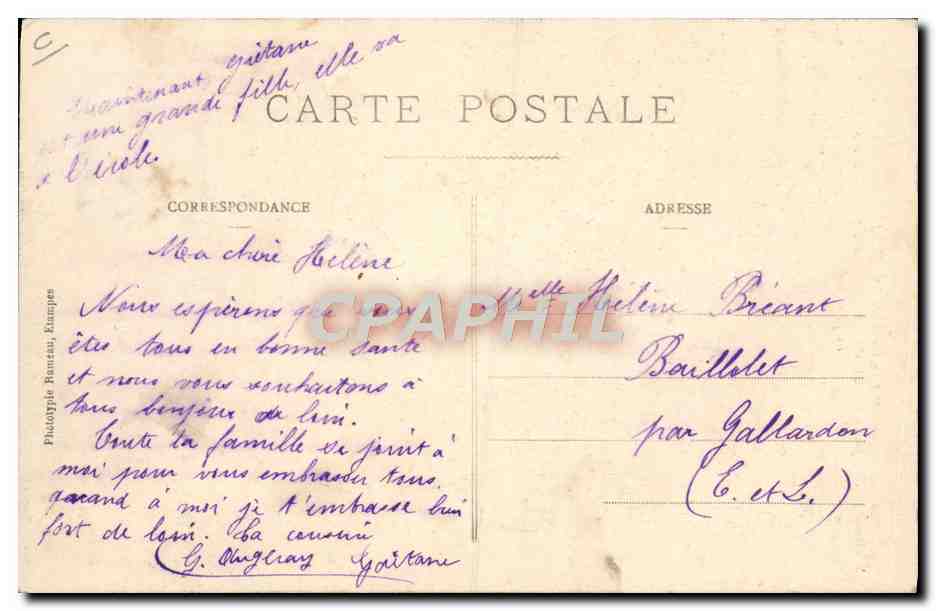 C
Maintenant, Gaëtane
est une grande fille, elle va
a l'école.
CARTE POSTALE
CORRESPONDANCE
ADRESSE
Ma chère Hélène
Nous espérons que vous
êtes tous en bonne santé
et nous vous souhaitons à
tous bonjour de loin.
Toute la famille se joint à
moi pour vous embrasser tous.
quand à moi je t'embrasse bien
fort de loin. Ta cousine
G. Gaëtane
Melle Hélène Bréant
Baillolet
par Gallardon
(E. et L.)
Phototypie Rameau, Etampes
CPAPHIL